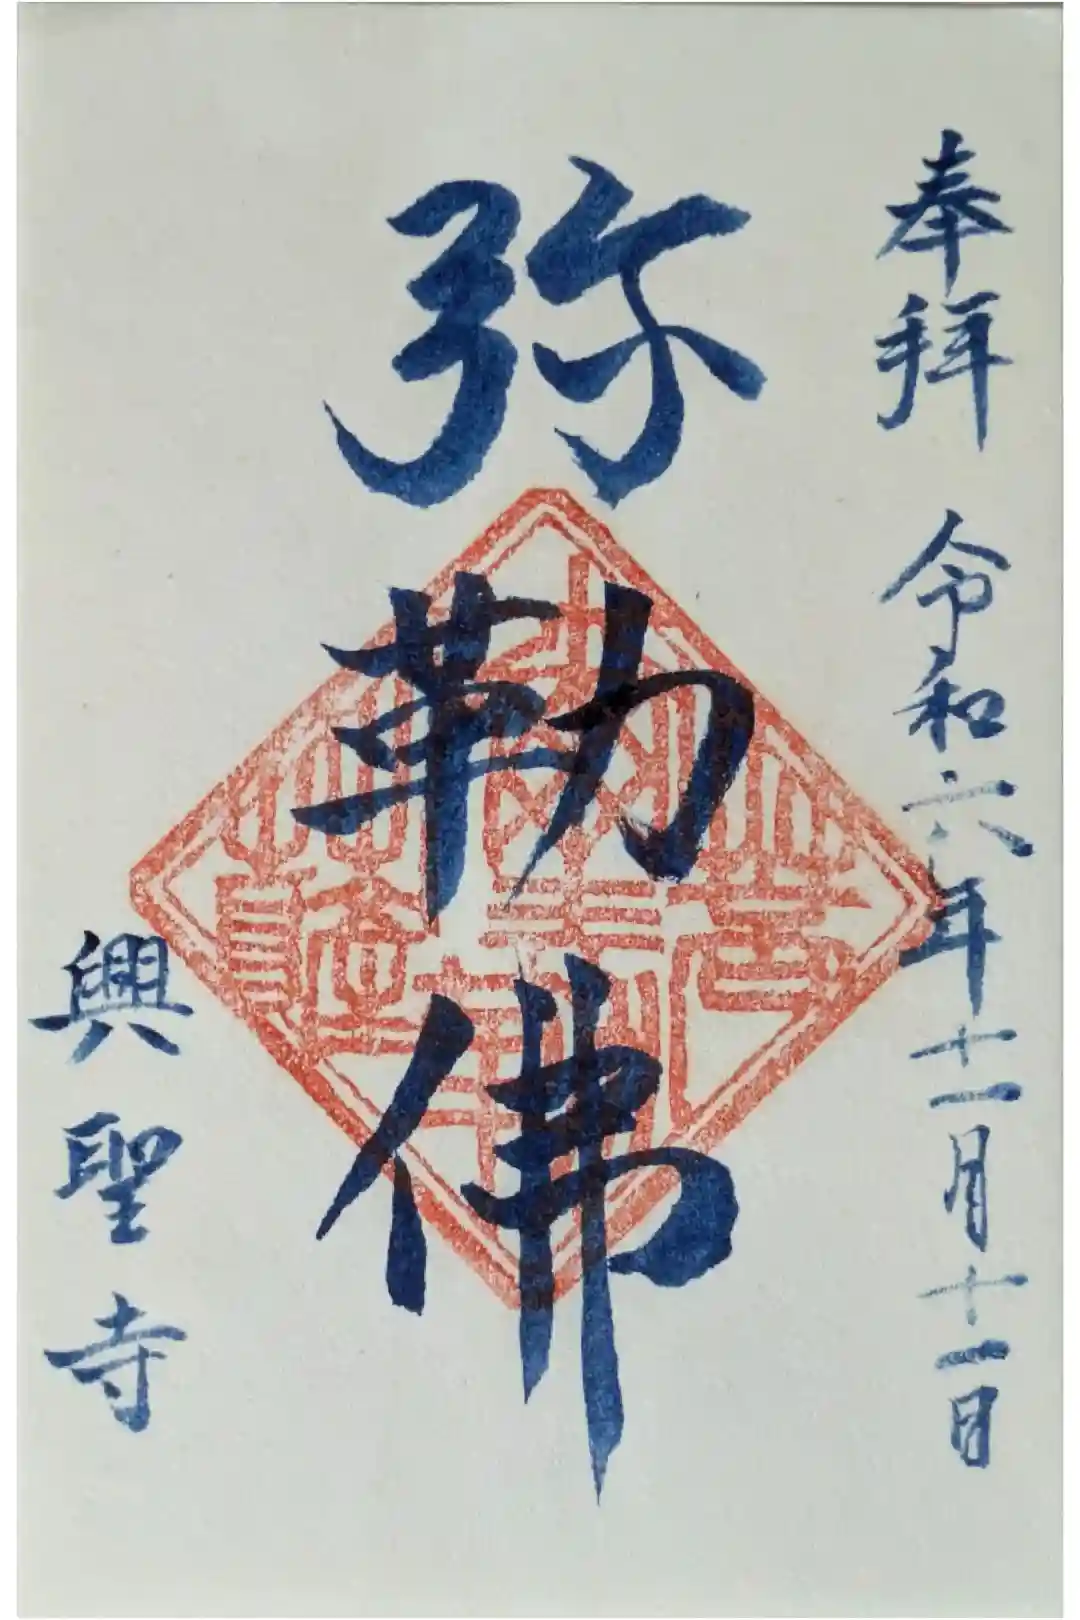 奉拝 令和六年十一月十一日
弥勒佛
興聖寺